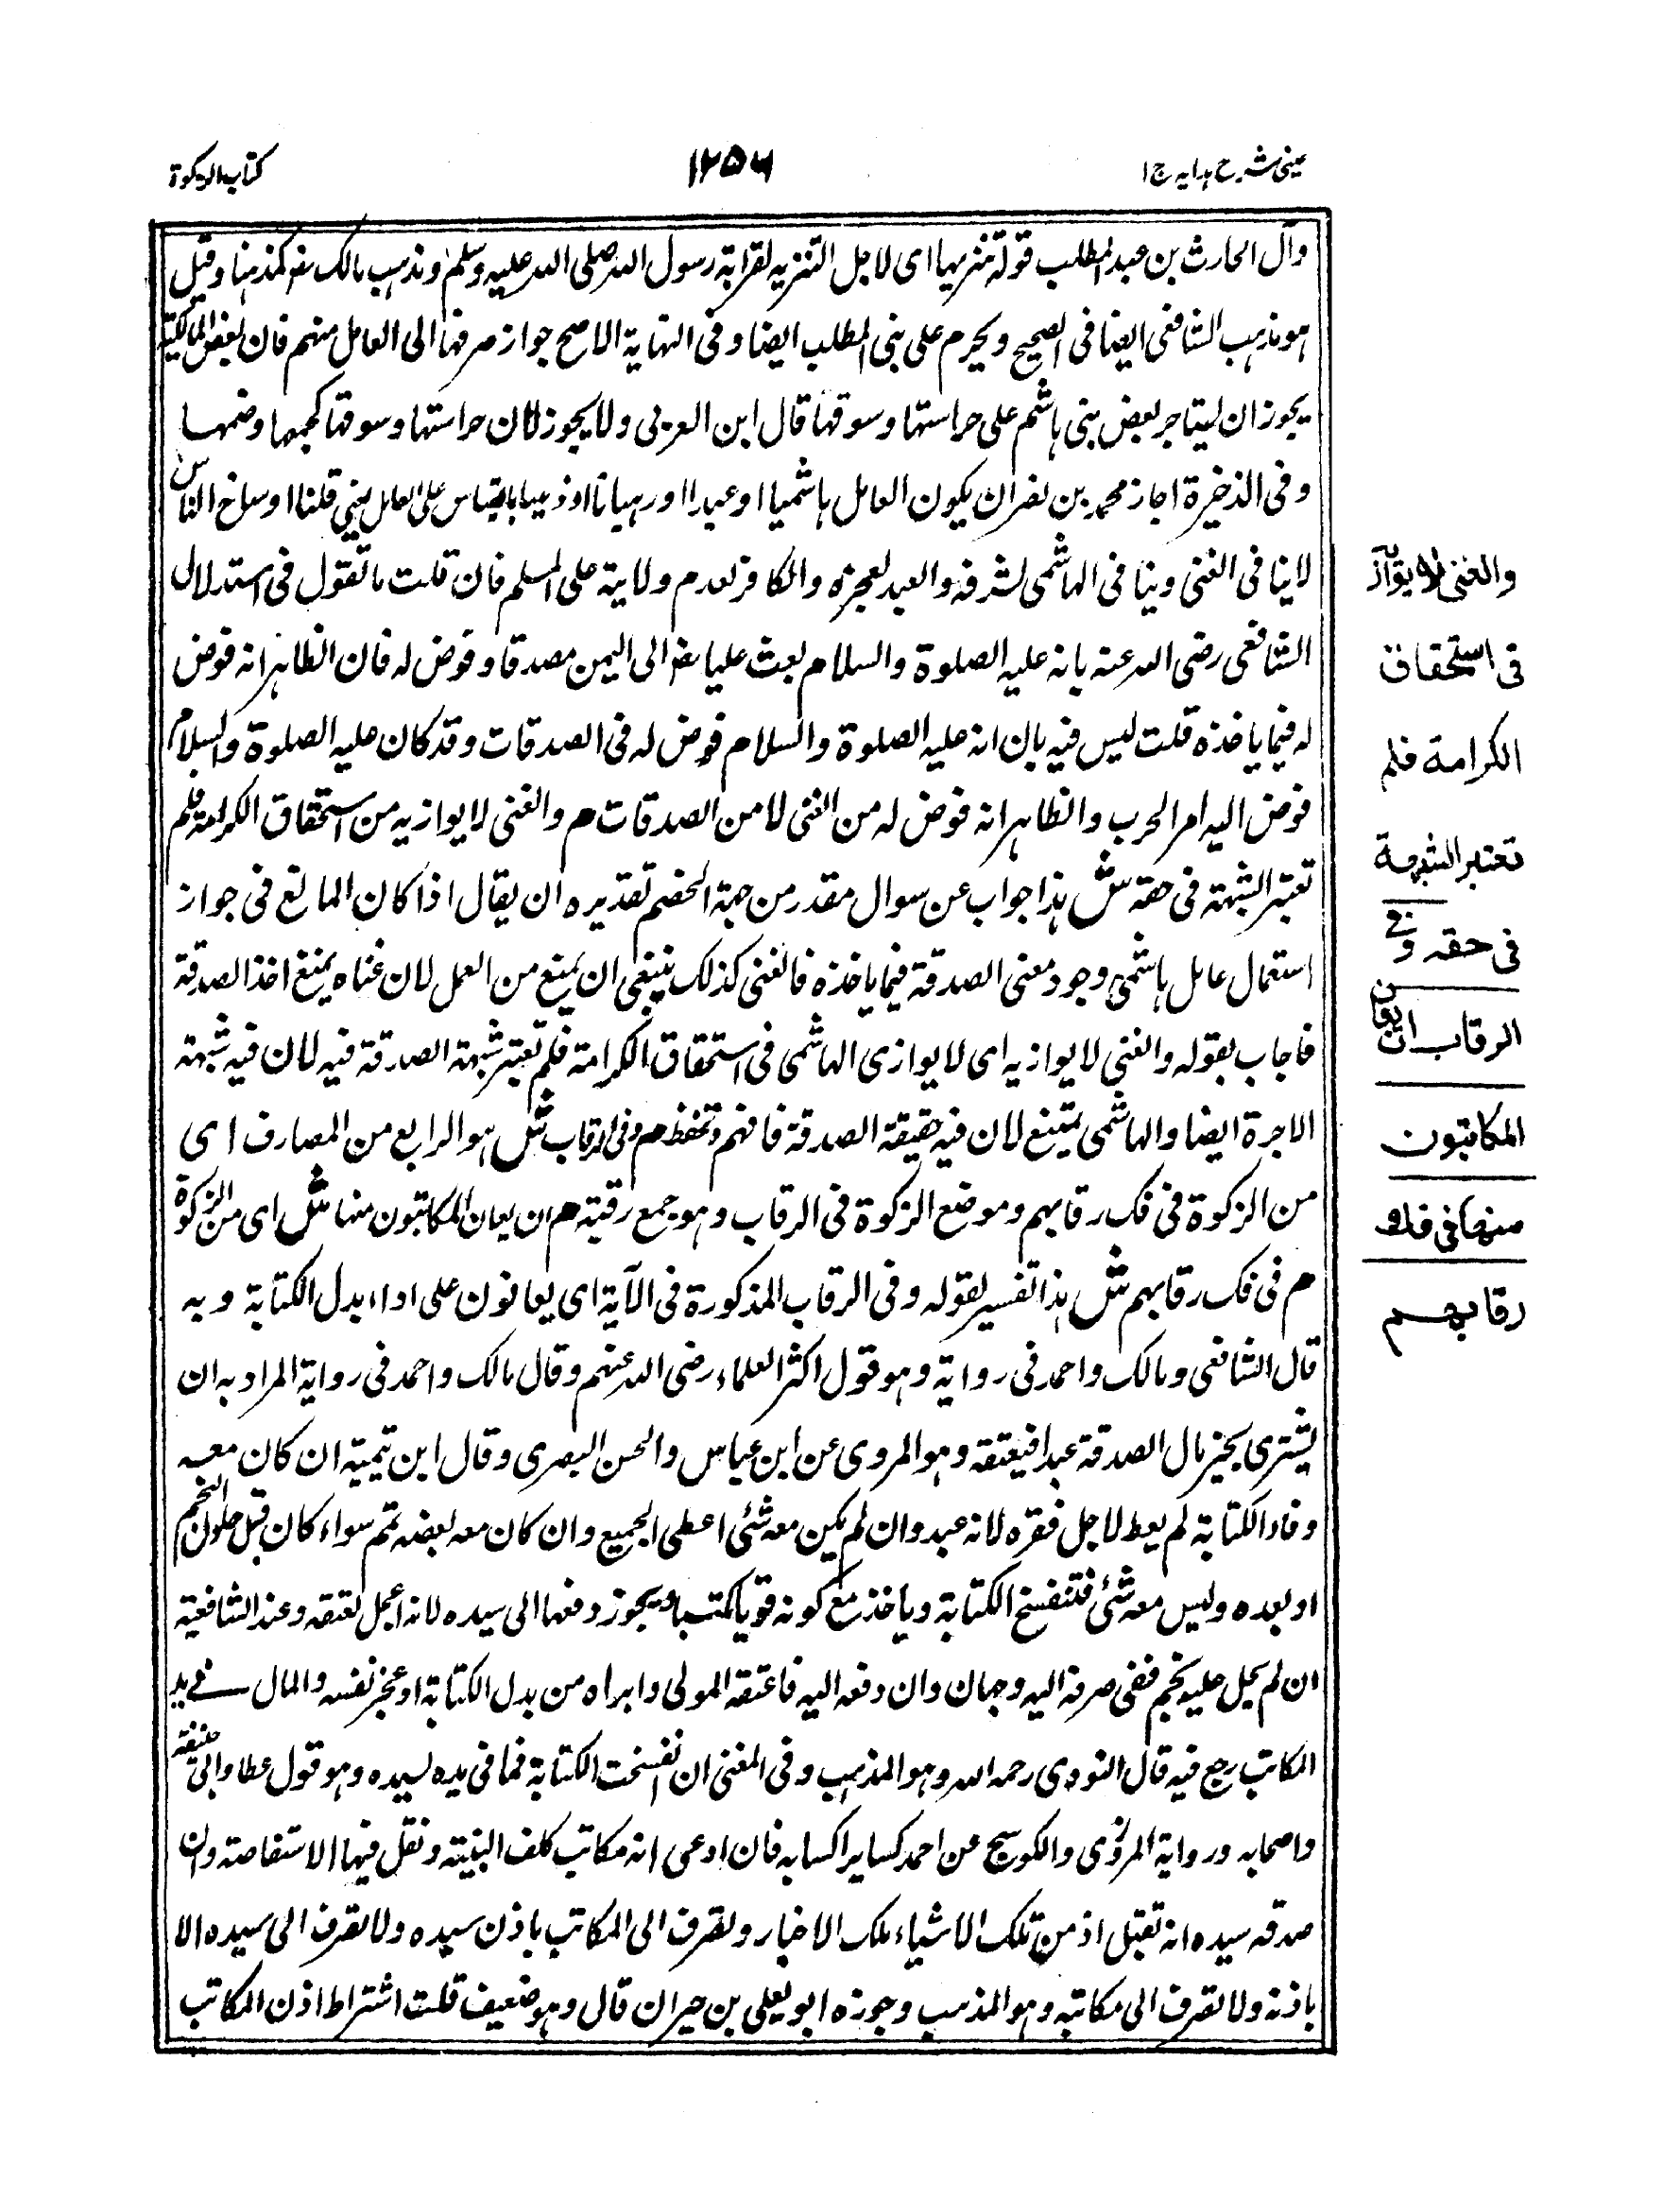 عینی شرح ہدایہ ج ۱
۱۲۵۶
كتاب الزكوة
وآل الحارث بن عبد المطلب قوله تنزيها اى لاجل التنزيه لقرابة رسول الله صلى الله عليه وسلم ومذهب مالك كمذهبنا وقيل
هو مذهب الشافعى ايضا فى الصحيح ويحرم على بنى المطلب ايضا وفى النهاية الاصح جواز صرفها الى العامل منهم فان بعض المالكية
يجوز ان يستاجر بعض بنى هاشم على حراستها وسوقها قال ابن العربى ولا يجوز لان حراستها وسوقها كجمعها وضمها
وفى الذخيرة اجاز محمد بن نصر ان يكون العامل هاشميا او عبدا او ذميا بالقياس على العامل يعنى قلنا اوساخ الناس
لا ينافى الغنى وينافى الهاشمى لشرفه والعبد لعجزه والكافر لعدم ولاية على المسلم فان قلت ما تقول فى استدلال
الشافعى رضى الله عنه بانه عليه الصلوة والسلام بعث عليا رضـ الى اليمن مصدقا وفوض له فان الظاهر انه فوض
له فيما ياخذه قلت ليس فيه بان انه عليه الصلوة والسلام فوض له فى الصدقات وقد كان عليه الصلوة والسلام
فوض اليه امر الحرب والظاهر انه فوض له من الفئ لا من الصدقات م والغنى لا يوازيه من استحقاق الكرامة فلم
تعتبر الشبهة فى حقه ش هذا جواب عن سوال مقدر من جهة الخصم تقديره ان يقال اذا كان المانع فى جواز
استعمال عامل هاشمى وجود معنى الصدقة فيما ياخذه فالغنى كذلك ينبغى ان يمنع من العمل لان غناه يمنع اخذ الصدقة
فاجاب بقوله والغنى لا يوازيه اى لا يوازى الهاشمى فى استحقاق الكرامة فلم تعتبر شبهة الصدقة فيه لان فيه شبهة
الاجرة ايضا والهاشمى يمتنع لان فيه حقيقة الصدقة فافهم وتحفظ م وفى الرقاب ش هو الرابع من المصارف اى
من الزكوة فى فك رقابهم وموضع الزكوة فى الرقاب وهو جمع رقبة م ان يعان المكاتبون منها ش اى من الزكوة
م فى فك رقابهم ش هذا تفسير لقوله وفى الرقاب المذكورة فى الآية اى يعانون على اداء بدل الكتابة وبه
قال الشافعى ومالك واحمد فى رواية وهو قول اكثر العلماء رضى الله عنهم وقال مالك واحمد فى رواية المراد به ان
يشترى بخير مال الصدقة عبدا فيعتقه وهو المروى عن ابن عباس والحسن البصرى وقال ابن تيمية ان كان معه
وفاء الكتابة لم يعط لاجل فقره لانه عبد وان لم يكن معه شئ اعطى الجميع وان كان معه بعضه تمم سواء كان قبل حلول النجم
او بعده وليس معه شئ فتنفسخ الكتابة وياخذ مع كونه قويا مكتسبا ويجوز دفعها الى سيده لانه اعجل لعتقه وعند الشافعية
ان لم يحل عليه نجم ففى صرفه اليه وجهان وان دفعه اليه فاعتقه المولى وابراه من بدل الكتابة او عجز نفسه والمال فى يد
المكاتب رجع فيه قال النووى رحمه الله وهو المذهب وفى المغنى ان انفسخت الكتابة فما فى يده لسيده وهو قول عطا وابى حنيفة
واصحابه ورواية المروزى والكوسج عن احمد كساير اكسابه فان ادعى انه مكاتب كلف البينة ونقل فيها الاستفاضة وان
صدقه سيده انه تقبل اذ من تلك الاشياء ملك الاخبار ولصرف الى المكاتب باذن سيده ولا تصرف الى سيده الا
باذنه ولا تصرف الى مكاتبه وهو المذهب وجوزه ابو يعلى بن حيران قال وهو ضعيف قلت اشتراط اذن المكاتب
والغنى لا يوازيه
فى استحقاق
الكرامة فلم
تعتبر الشبهة
فى حقه وفى
الرقاب ان يعان
المكاتبون
منها فى فك
رقابهم